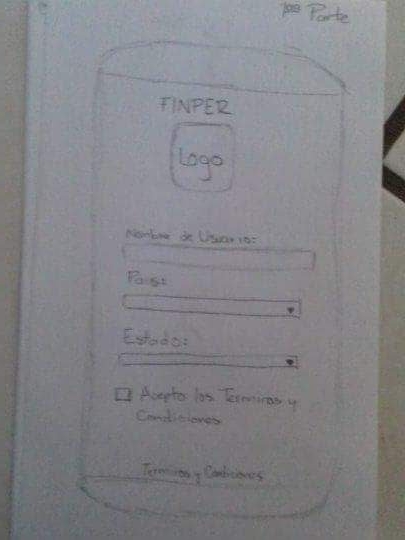 1ra Parte
FINPER
Logo
Nombre de Usuario:
País:
Estado:
Acepto los Terminos y
Condiciones
Terminos y Condiciones